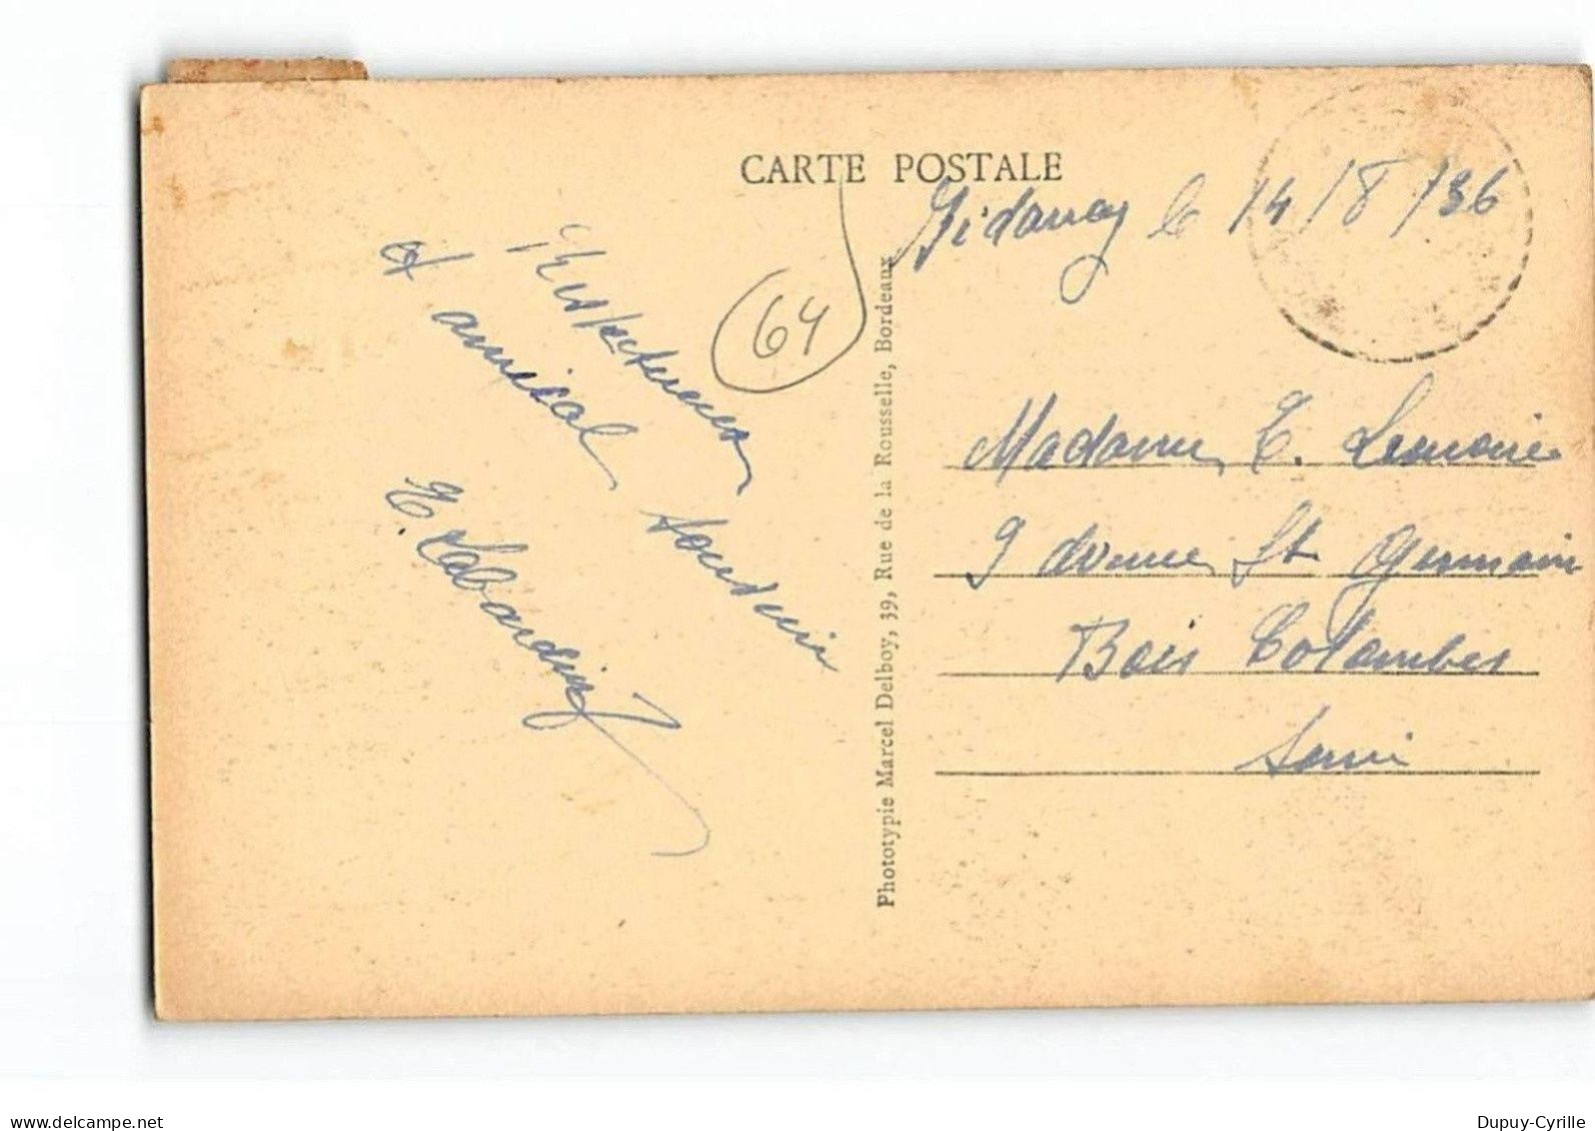 CARTE POSTALE
Bidarray le 14/8/36
64
Respectueux
et amical souvenir
E. Labardin
Phototypie Marcel Delboy, 39, Rue de la Rousselle, Bordeaux
Madame E. Lemoine
9 avenue St Germain
Bois Colombes
Seine
www.delcampe.net
Dupuy-Cyrille